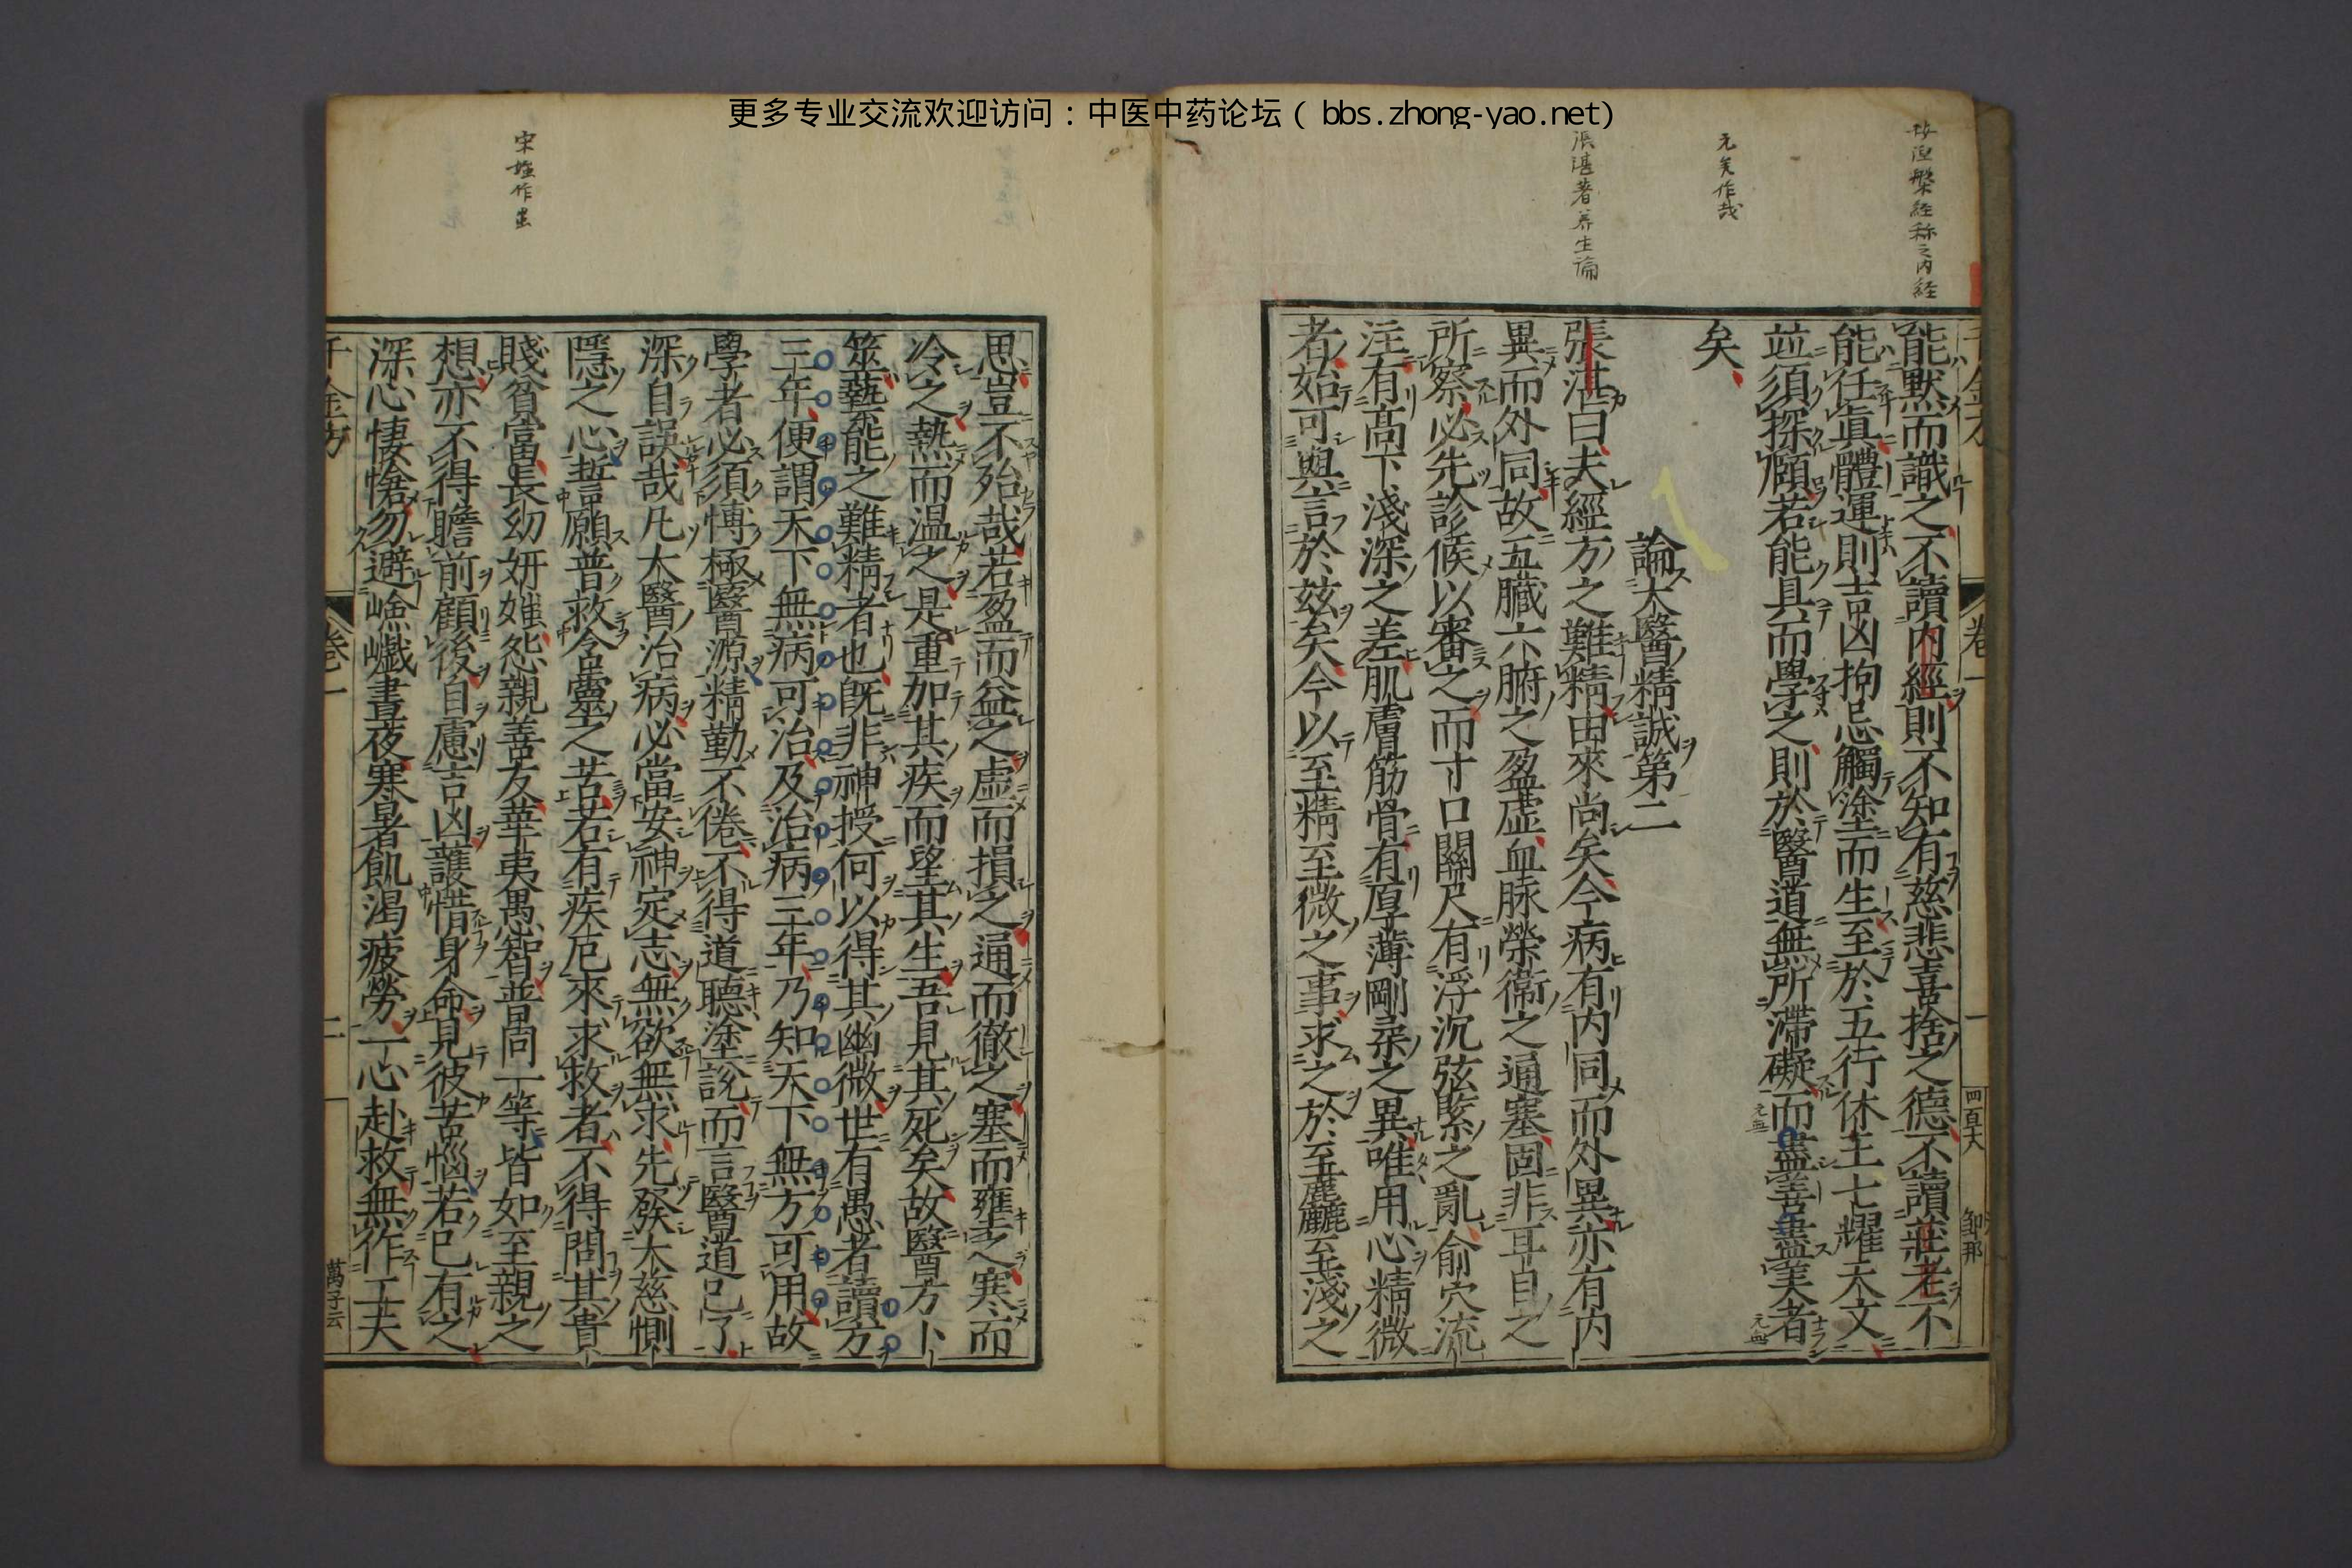 更多专业交流欢迎访问：中医中药论坛（bbs.zhong-yao.net）
涅槃経称之内経
元矣作哉
張湛著养生論
能默而識之不讀内經則不知有慈悲喜捨之德不讀莊老不
能任眞體運則吉凶拘忌觸塗而生至於五行休王七耀天文
竝須探賾若能具而學之則於醫道無所滯礙而盡善盡美者
矣
論大醫精誠第二
張湛曰夫經方之難精由來尚矣今病有内同而外異亦有内
異而外同故五臟六腑之盈虛血脉榮衞之通塞固非耳目之
所察必先診候以審之而寸口關尺有浮沉弦緊之亂俞穴流
注有高下淺深之差肌膚筋骨有厚薄剛柔之異唯用心精微
者始可與言於兹矣今以至精至微之事求之於至麁至淺之
四百六
宋 作蚩
思豈不殆哉若盈而益之虛而損之通而徹之塞而壅之寒而
冷之熱而温之是重加其疾而望其生吾見其死矣故醫方卜
筮藝能之難精者也旣非神授何以得其幽微世有愚者讀方
三年便謂天下無病可治及治病三年乃知天下無方可用故
學者必須博極醫源精勤不倦不得道聽塗說而言醫道已了
深自誤哉凡大醫治病必當安神定志無欲無求先發大慈惻
隱之心誓願普救含靈之苦若有疾厄來求救者不得問其貴
賤貧富長幼妍媸怨親善友華夷愚智普同一等皆如至親之
想亦不得瞻前顧後自慮吉凶護惜身命見彼苦惱若已有之
深心悽愴勿避嶮巇晝夜寒暑飢渴疲勞一心赴救無作工夫
千金方
卷一
二
萬子云